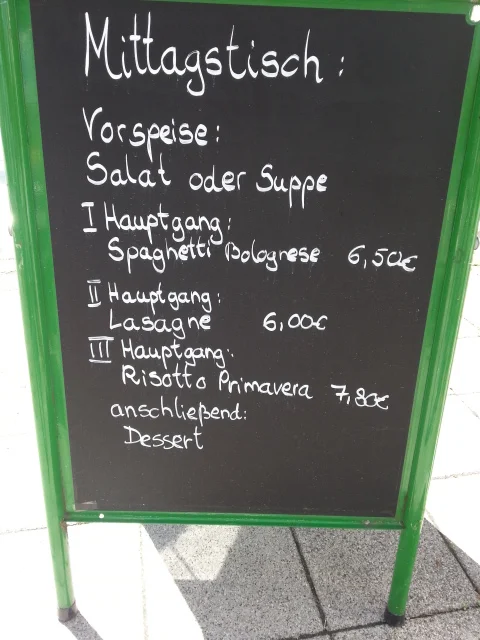 Mittagstisch:
Vorspeise:
Salat oder Suppe
I Hauptgang:
Spaghetti Bolognese 6,50€
II Hauptgang:
Lasagne 6,00€
III Hauptgang:
Risotto Primavera 7,80€
anschließend:
Dessert